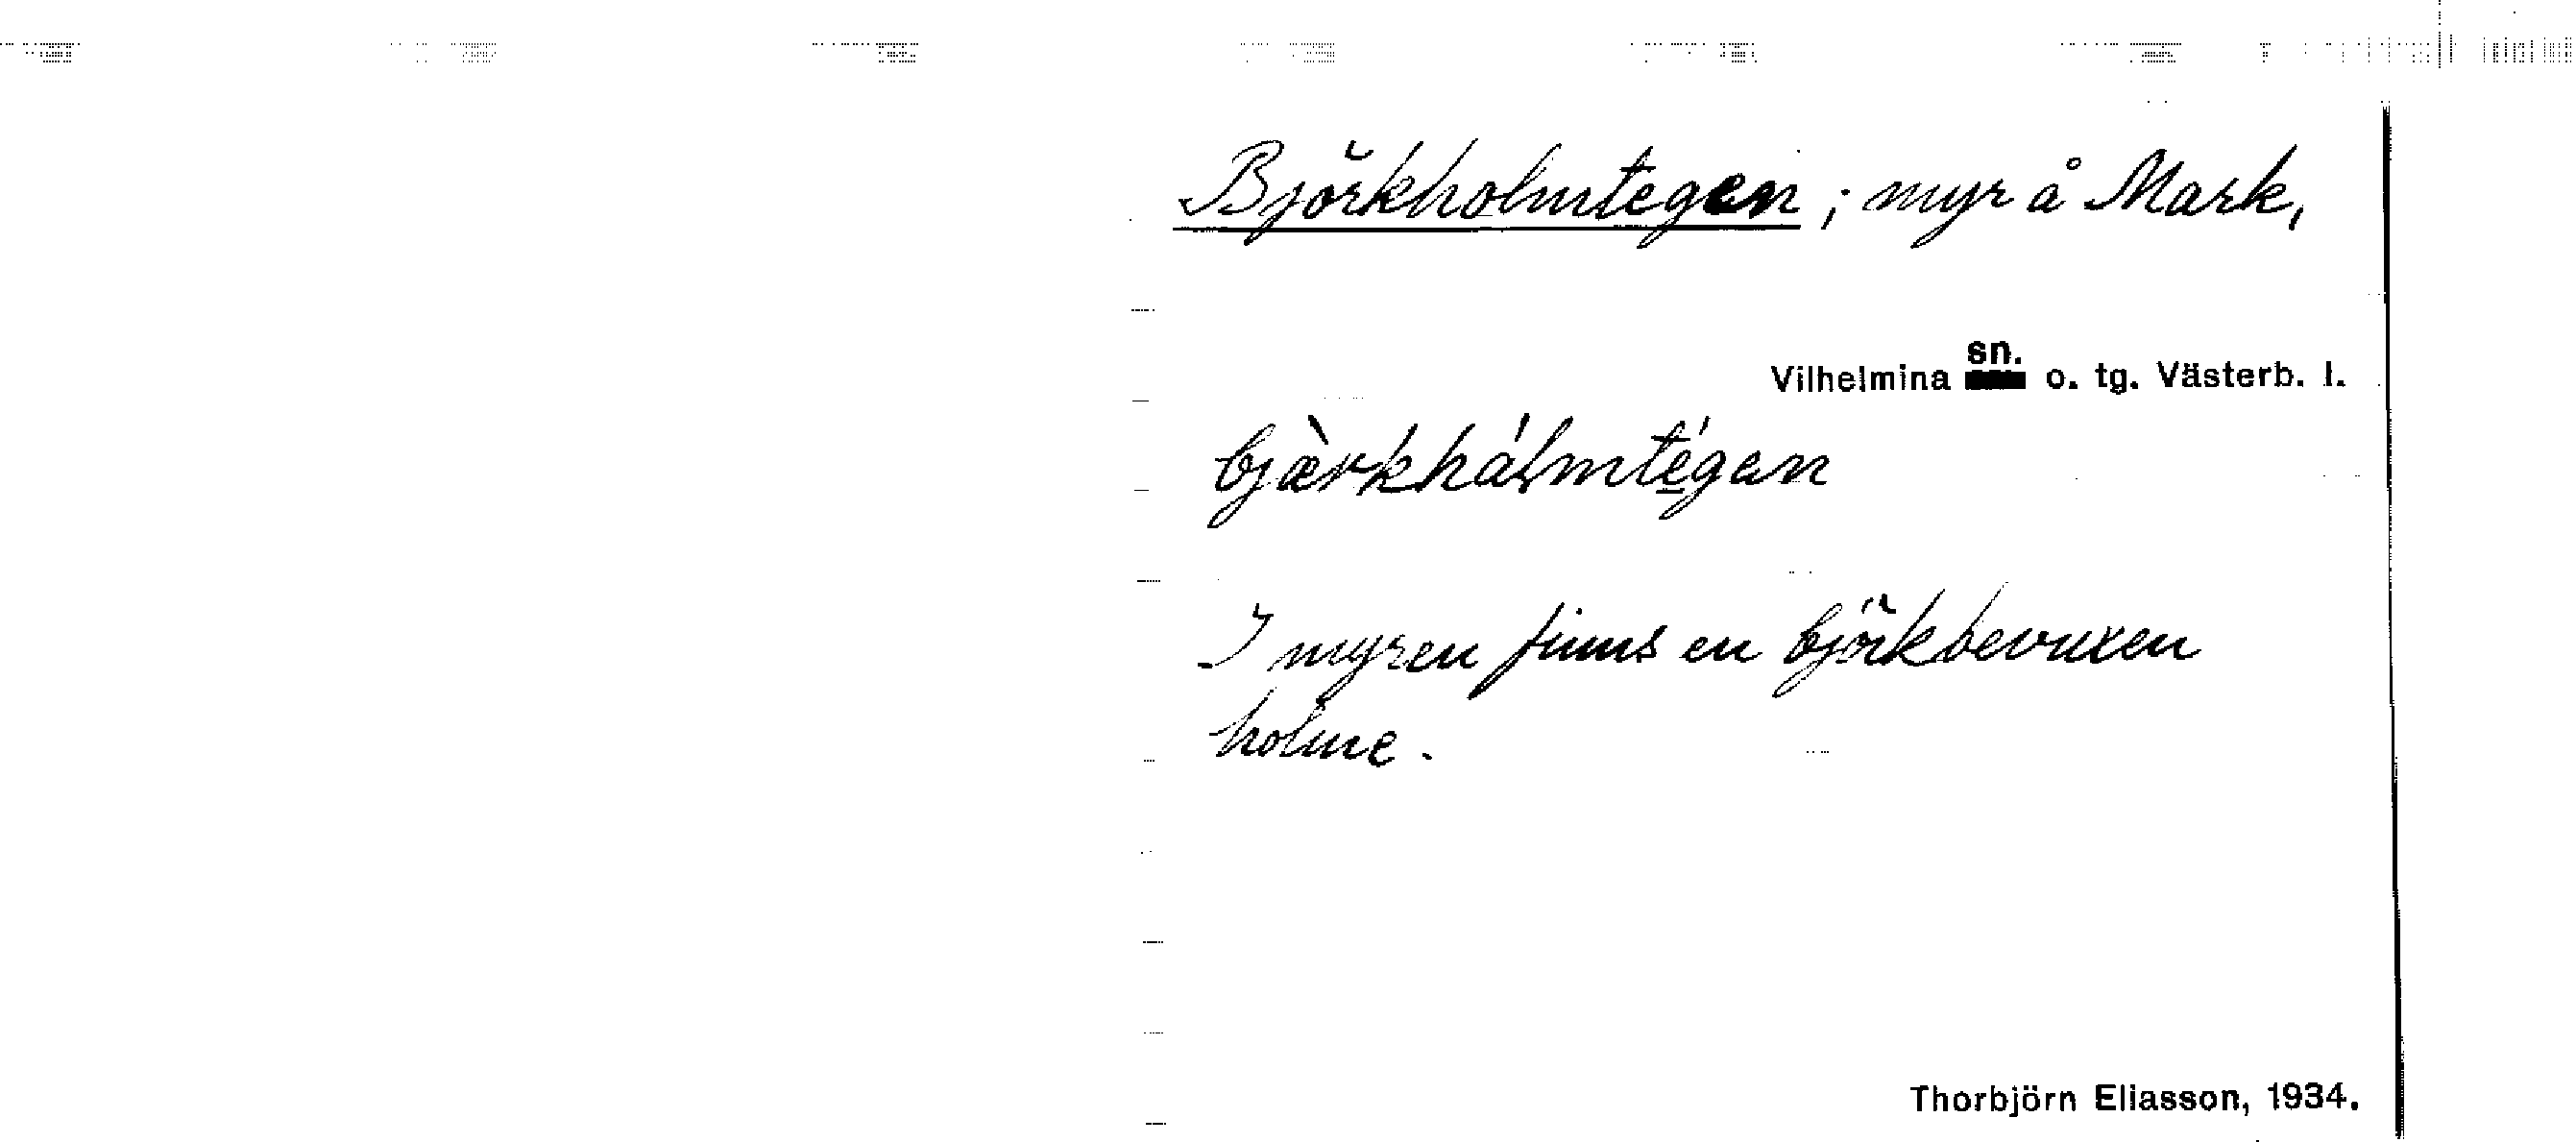 Björkholmtegen; myr å Mark,
sn.
Vilhelmina o. tg. Västerb. l.
bjæ̀rkhálmtégan
I myren finns en björkbevuxen
holme.
Thorbjörn Eliasson, 1934.